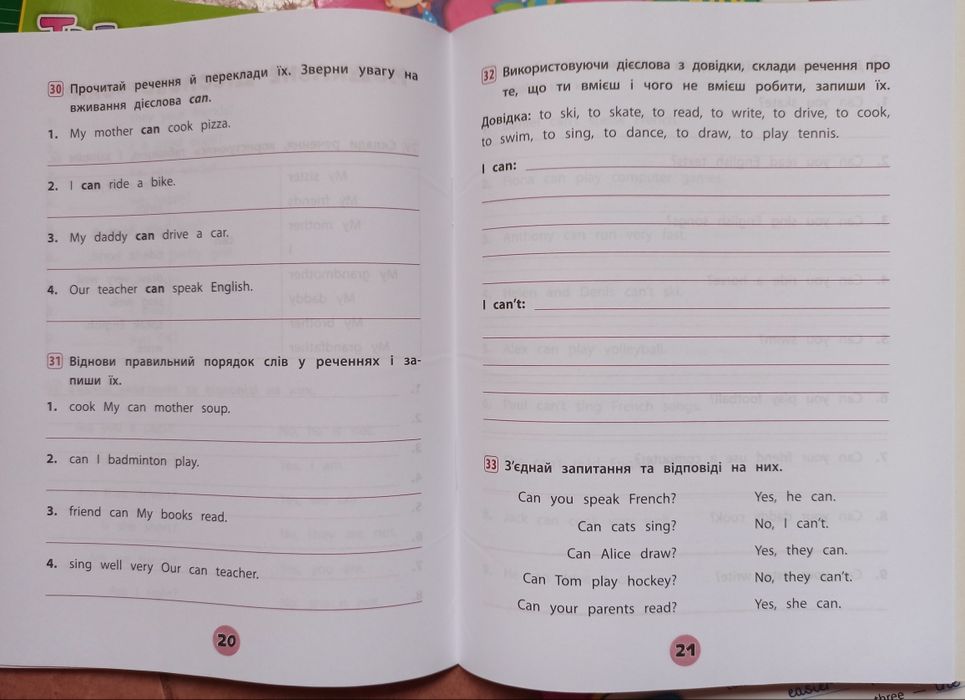 30 Прочитай речення й переклади їх. Зверни увагу на
вживання дієслова can.
1. My mother can cook pizza.
2. I can ride a bike.
3. My daddy can drive a car.
4. Our teacher can speak English.
31 Віднови правильний порядок слів у реченнях і за-
пиши їх.
1. cook My can mother soup.
2. can I badminton play.
3. friend can My books read.
4. sing well very Our can teacher.
20
32 Використовуючи дієслова з довідки, склади речення про
те, що ти вмієш і чого не вмієш робити, запиши їх.
Довідка: to ski, to skate, to read, to write, to drive, to cook,
to swim, to sing, to dance, to draw, to play tennis.
I can:
I can't:
33 З'єднай запитання та відповіді на них.
Can you speak French? Yes, he can.
Can cats sing? No, I can't.
Can Alice draw? Yes, they can.
Can Tom play hockey? No, they can't.
Can your parents read? Yes, she can.
21
easier
three — the